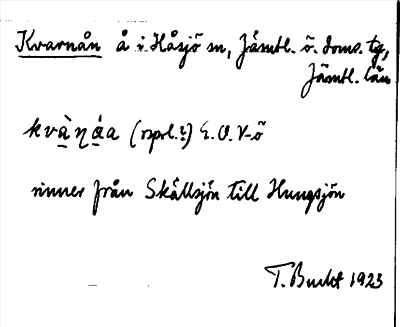 Kvarnån å i Håsjö sn, Jämtl. ö. doms. tg,
Jämtl. län
kvàṇáa (ospl.?) G. O. V-ö
rinner från Skållsjön till Hungsjön
T. Bucht 1923